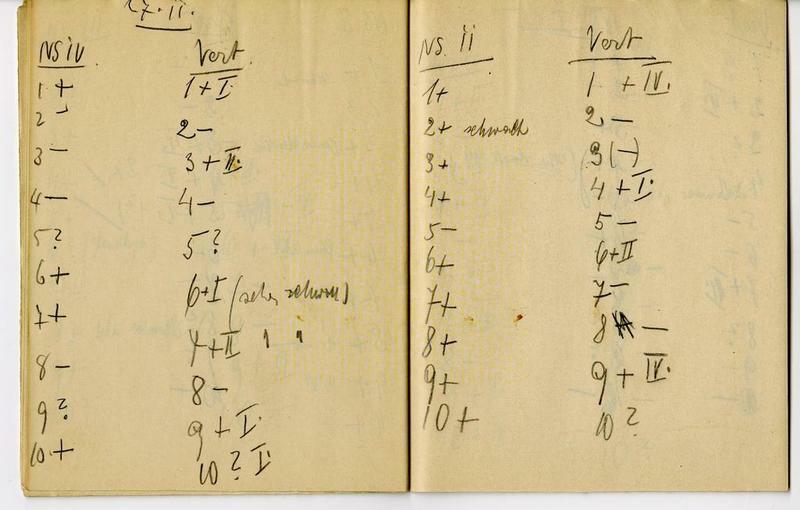 27. II.
NS IV Vert.
1 + 1 + I.
2 - 2 -
3 - 3 + II.
4 - 4 -
5 ? 5 ?
6 + 6 + I (sehr schwach)
7 + 7 + II " "
8 - 8 -
9 ? 9 + I.
10 + 10 ? I.
NS. II Vert
1 + 1 + IV.
2 + schwach 2 -
3 + 3 (-)
4 + 4 + I.
5 - 5 -
6 + 6 + II
7 + 7 -
8 + 8 -
9 + 9 + IV.
10 + 10 ?